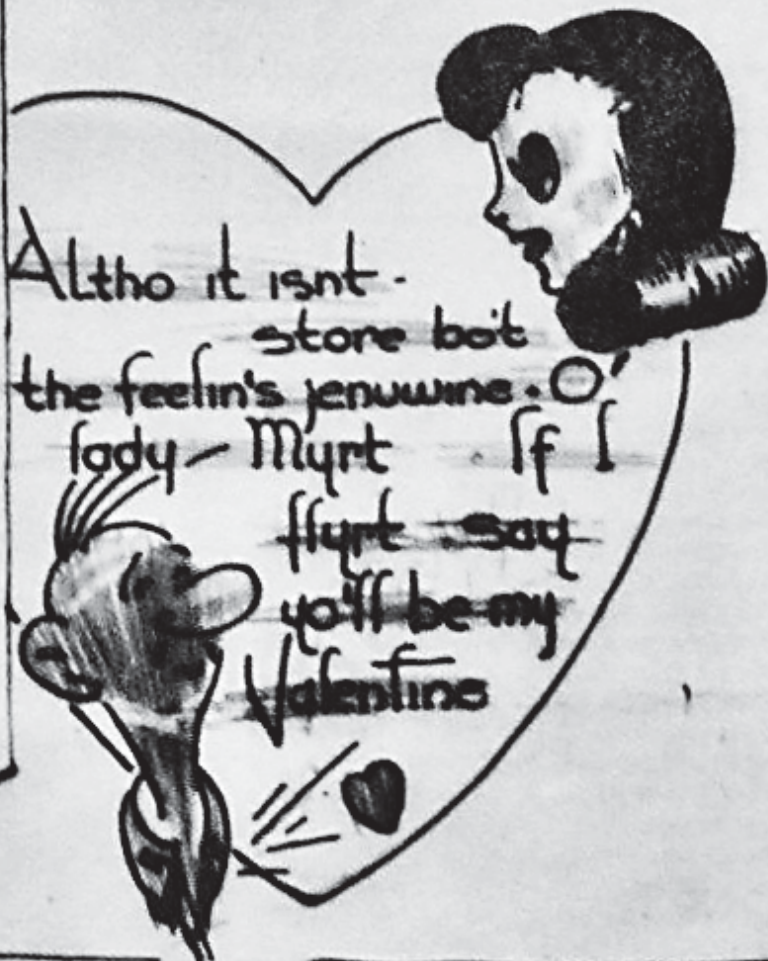 Altho it isnt -
store bo't
the feelin's jenuwine. O'
lady - Myrt If I
flyrt say
yo'll be my
Valentine